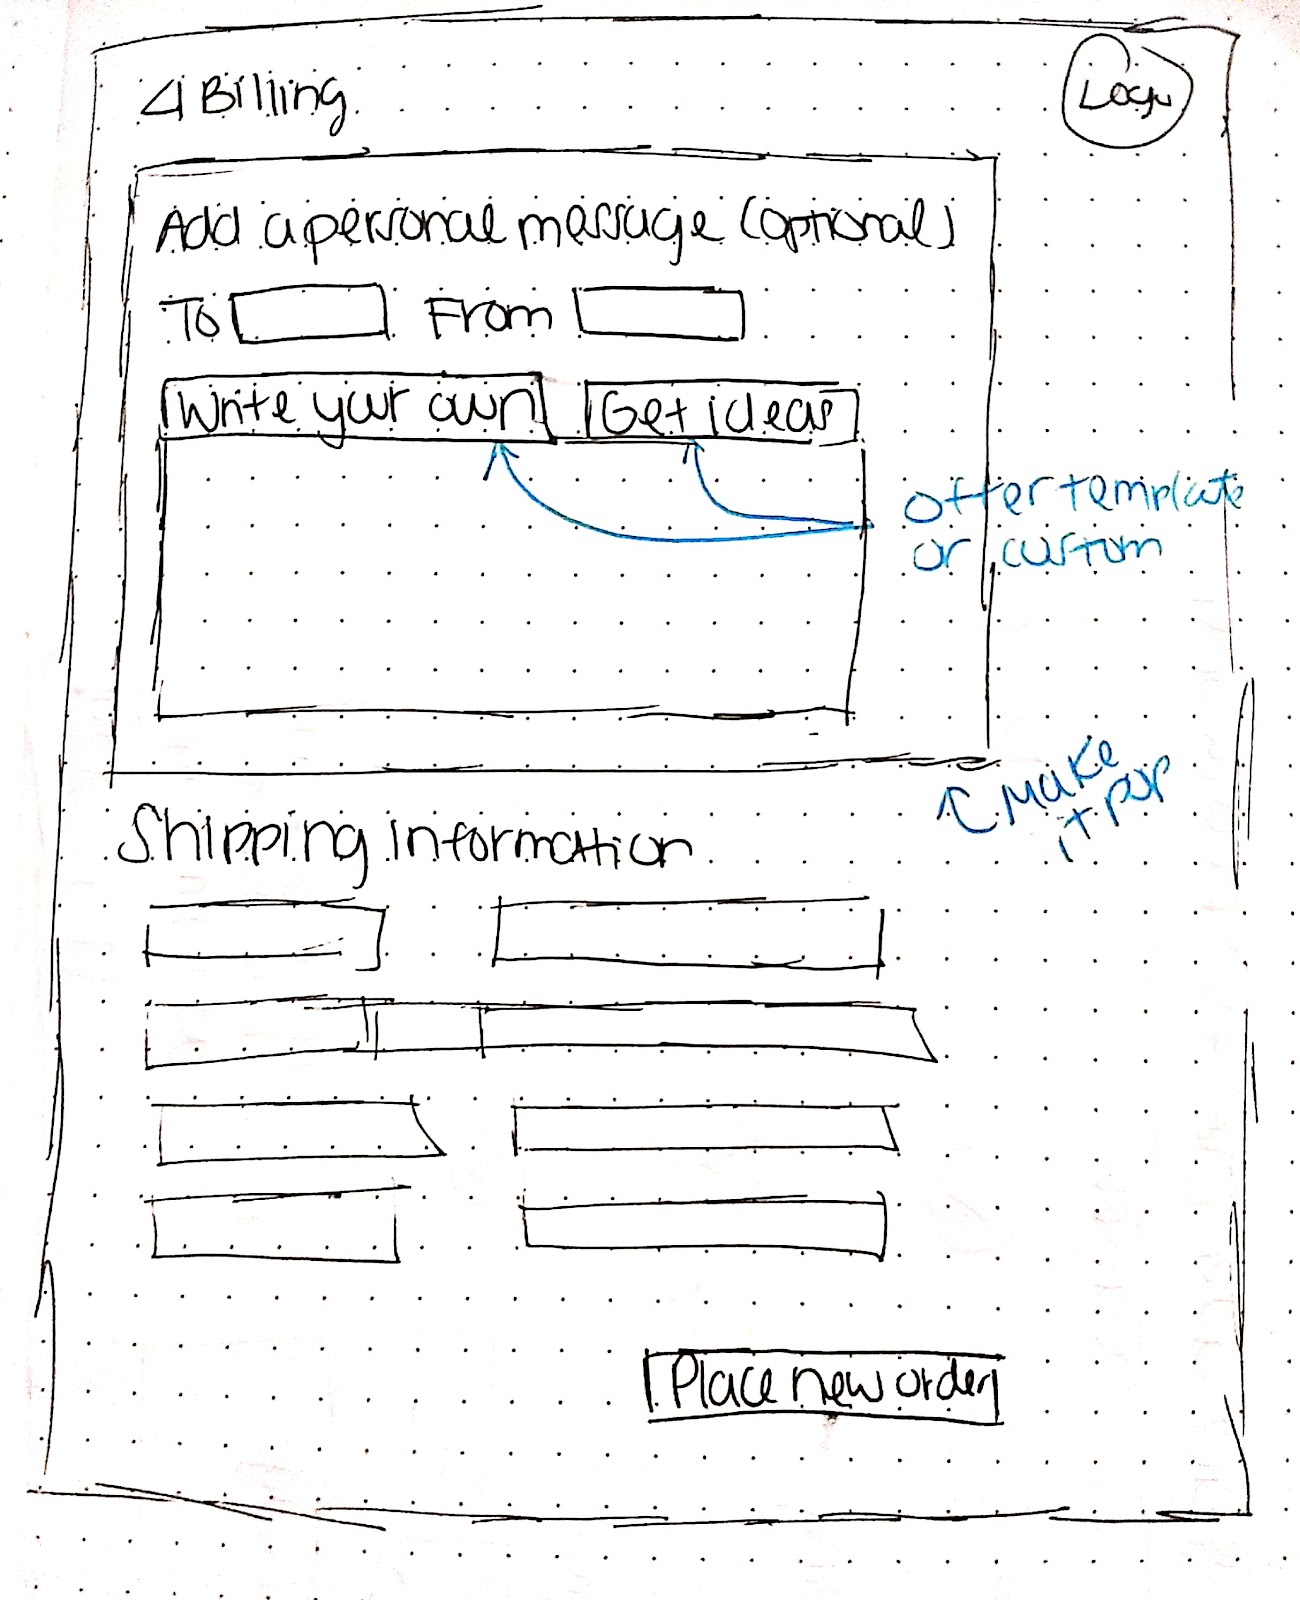 Billing
Logo
Add a personal message (optional)
To From
Write your own Get ideas
Offer template
or custom
Make
it pop
Shipping information
Place new order